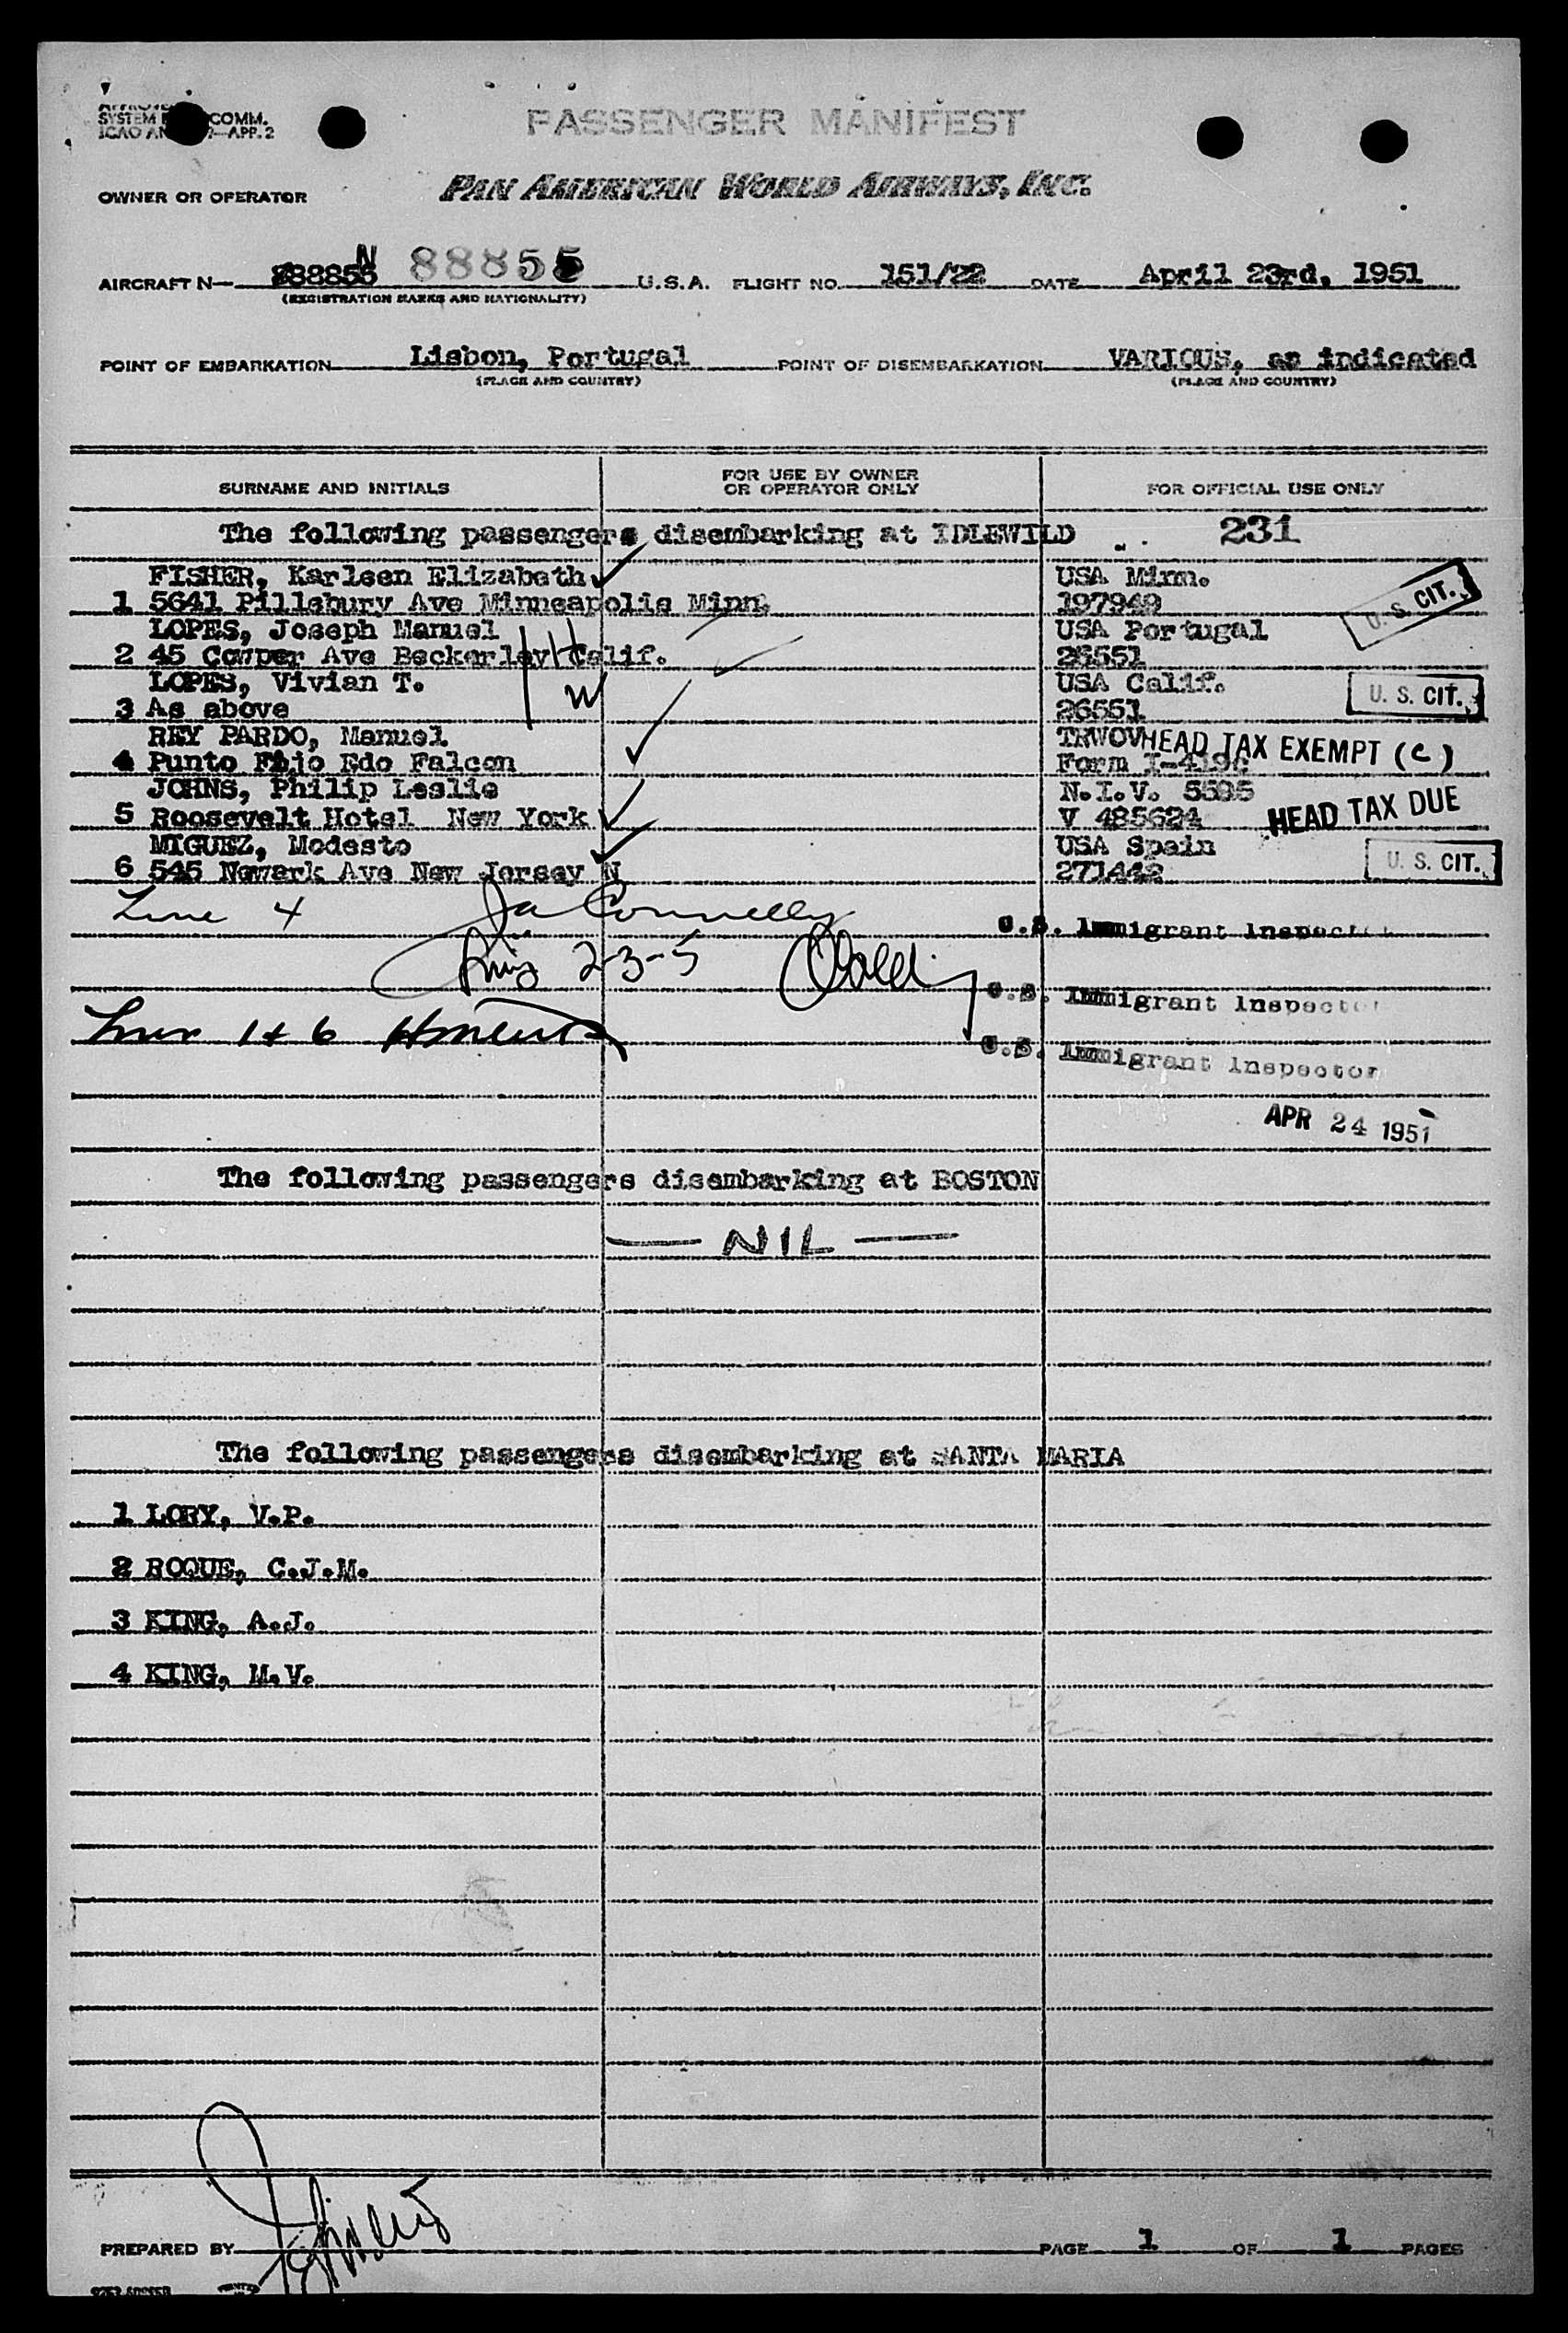 SYSTEM COMM.
ICAO AN —APP. 2
PASSENGER MANIFEST
OWNER OR OPERATOR PAN AMERICAN WORLD AIRWAYS, INC.
AIRCRAFT N— N 88855 U.S.A. FLIGHT NO. 151/22 DATE April 23rd, 1951
(REGISTRATION MARKS AND NATIONALITY)
POINT OF EMBARKATION Lisbon, Portugal POINT OF DISEMBARKATION VARIOUS, as indicated
(PLACE AND COUNTRY) (PLACE AND COUNTRY)
SURNAME AND INITIALS FOR USE BY OWNER OR OPERATOR ONLY FOR OFFICIAL USE ONLY
The following passengers disembarking at IDLEWILD 231
FISHER, Karleen Elizabeth USA Minn.
1 5641 Pillsbury Ave Minneapolis Minn. 197949 U. S. CIT.
LOPES, Joseph Manuel USA Portugal
2 45 Cowper Ave Beckerley Calif. H 26551
LOPES, Vivian T. W USA Calif. U. S. CIT.
3 As above 26551
REY PARDO, Manuel TRWOV HEAD TAX EXEMPT (C)
4 Punto Fijo Edo Falcon Form I-419c
JOHNS, Philip Leslie N.I.V. 5595
5 Roosevelt Hotel New York V 485624 HEAD TAX DUE
MIGUEZ, Modesto USA Spain
6 545 Newark Ave New Jersey N 271442 U. S. CIT.
Line 4 Ja Connelly U.S. Immigrant Inspector
2-3-5 U.S. Immigrant Inspector
1 + 6 U.S. Immigrant Inspector
APR 24 1951
The following passengers disembarking at BOSTON
— NIL —
The following passengers disembarking at SANTA MARIA
1 LORY, V.P.
2 ROQUE, C.J.M.
3 KING, A.J.
4 KING, M.V.
PREPARED BY PAGE 1 OF 1 PAGES